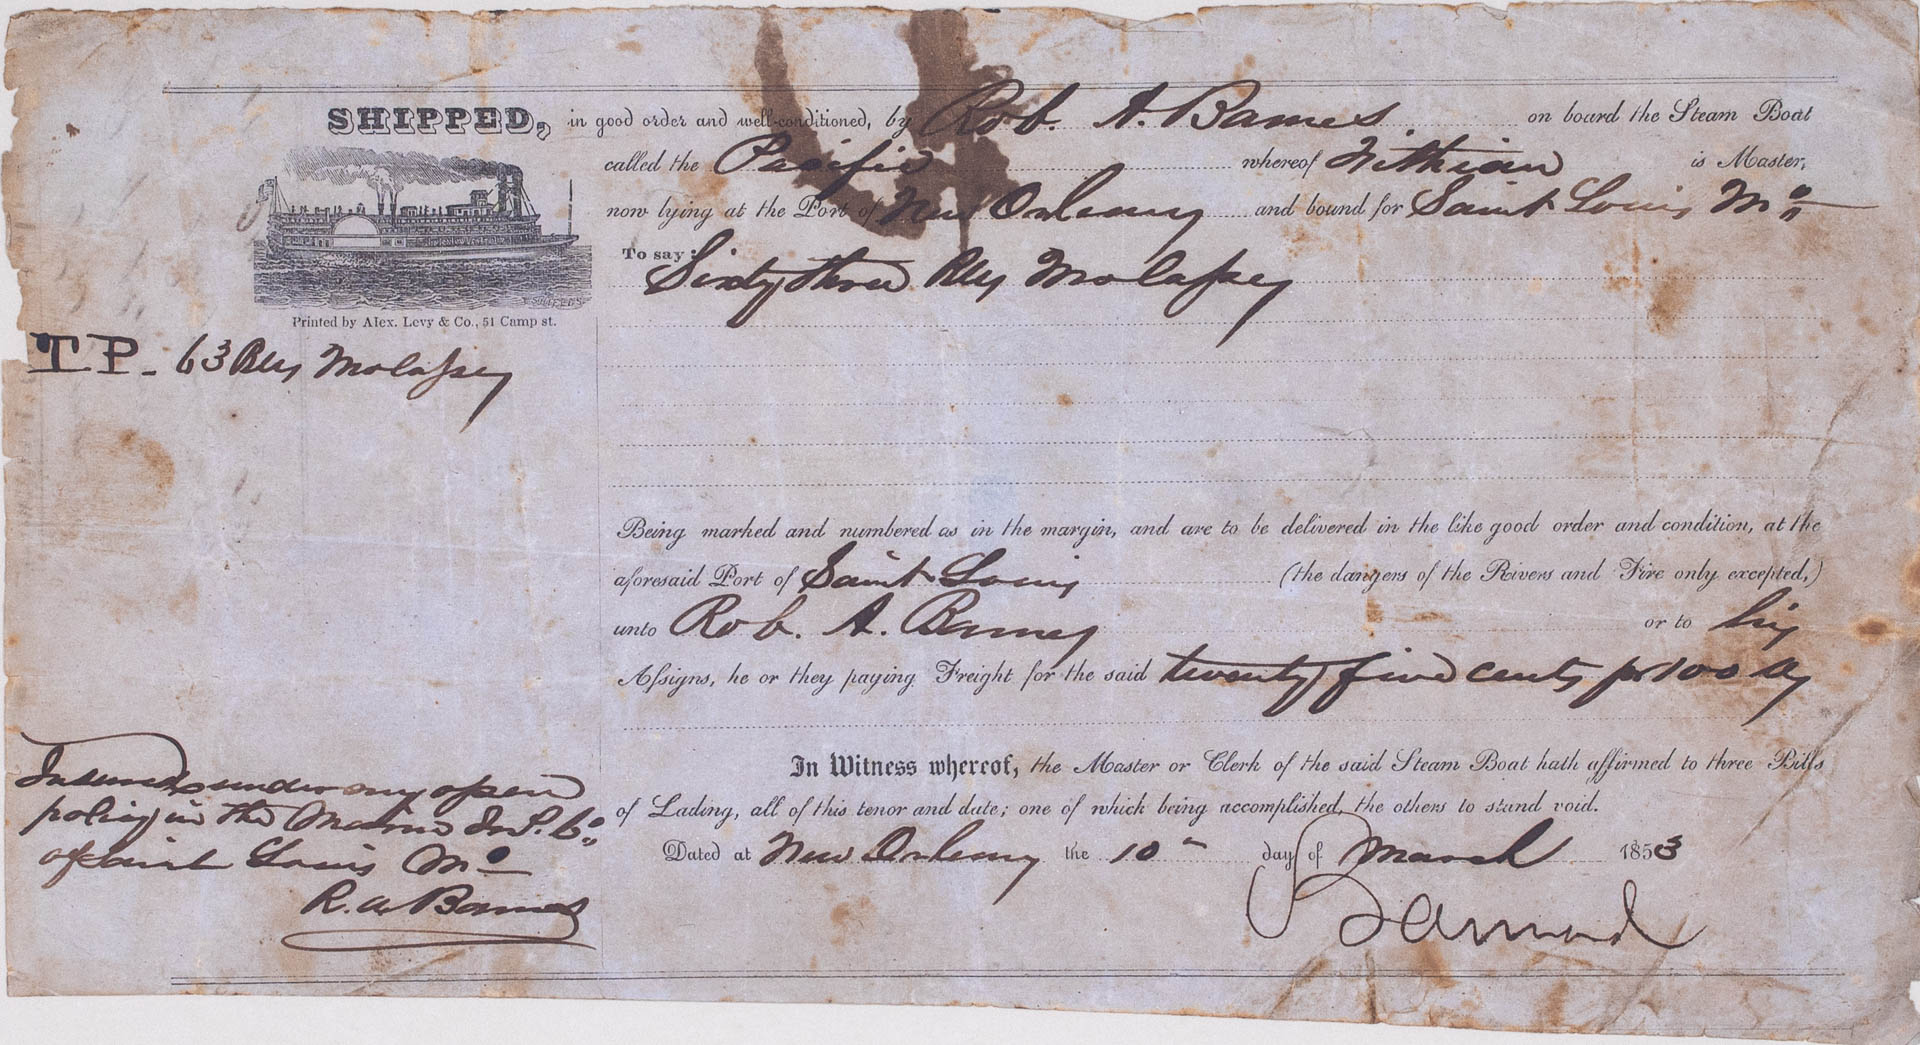 SHIPPED, in good order and well-conditioned, by Rob. A. Barnes on board the Steam Boat
called the Pacific whereof Nithian is Master,
now lying at the Port of New Orleans and bound for Saint Louis Mo
To say: Sixty three Bls Molasses
Printed by Alex. Levy & Co., 51 Camp st.
T P. 63 Bls Molasses
Being marked and numbered as in the margin, and are to be delivered in the like good order and condition, at the
aforesaid Port of Saint Louis (the dangers of the Rivers and Fire only excepted,)
unto Rob. A. Barnes or to his
Assigns, he or they paying Freight for the said twenty five cents pr 100 lbs
In Witness whereof, the Master or Clerk of the said Steam Boat hath affirmed to three Bills
of Lading, all of this tenor and date; one of which being accomplished, the others to stand void.
Dated at New Orleans the 10th day of March 1853
Insured under my open
policy in the Marine Ins. Co.
of Saint Louis Mo
R. A. Barnes